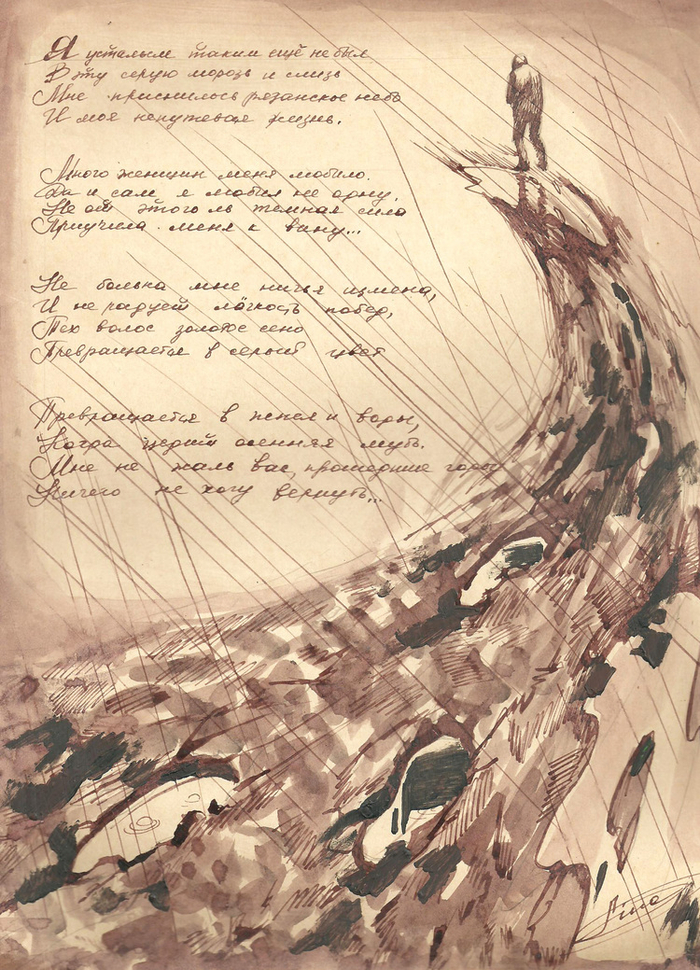 Я усталым таким ещё не был
В эту серую морозь и слизь
Мне приснилось рязанское небо
И моя непутевая жизнь.
Много женщин меня любило.
Да и сам я любил не одну.
Не от этого ль темная сила
Приучила меня к вину...
Не больна мне ничья измена,
И не радует лёгкость побед,
Тех волос золотое сено
Превращается в серый цвет
Превращается в пепел и воды,
Когда цедит осенняя муть.
Мне не жаль вас, прошедшие годы
Ничего не хочу вернуть...